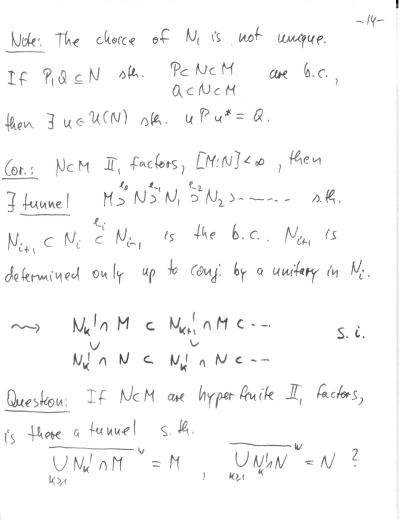 -14-
Note: The choice of N₁ is not unique.
If P, Q ⊆ N sth. P⊂N⊂M are b.c.,
Q⊂N⊂M
then ∃ u ∈ U(N) sth. u P u* = Q.
Cor.: N⊂M II₁ factors, [M:N]<∞, then
∃ tunnel M ⊃^{e₀} N ⊃^{e₋₁} N₁ ⊃^{e₋₂} N₂ ⊃ ----- s.th.
N_{i+1} ⊂ N_i ⊂^{e_i} N_{i-1} is the b.c.. N_{i+1} is
determined only up to conj. by a unitary in N_i.
⇝ N_k' ∩ M ⊂ N_{k+1}' ∩ M ⊂ --- s.i.
∪ ∪
N_k' ∩ N ⊂ N_k' ∩ N ⊂ ---
Question: If N⊂M are hyperfinite II₁ factors,
is there a tunnel s.th.
\overline{⋃_{k≥1} N_k' ∩ M}^w = M , \overline{⋃_{k≥1} N_k' ∩ N}^w = N ?